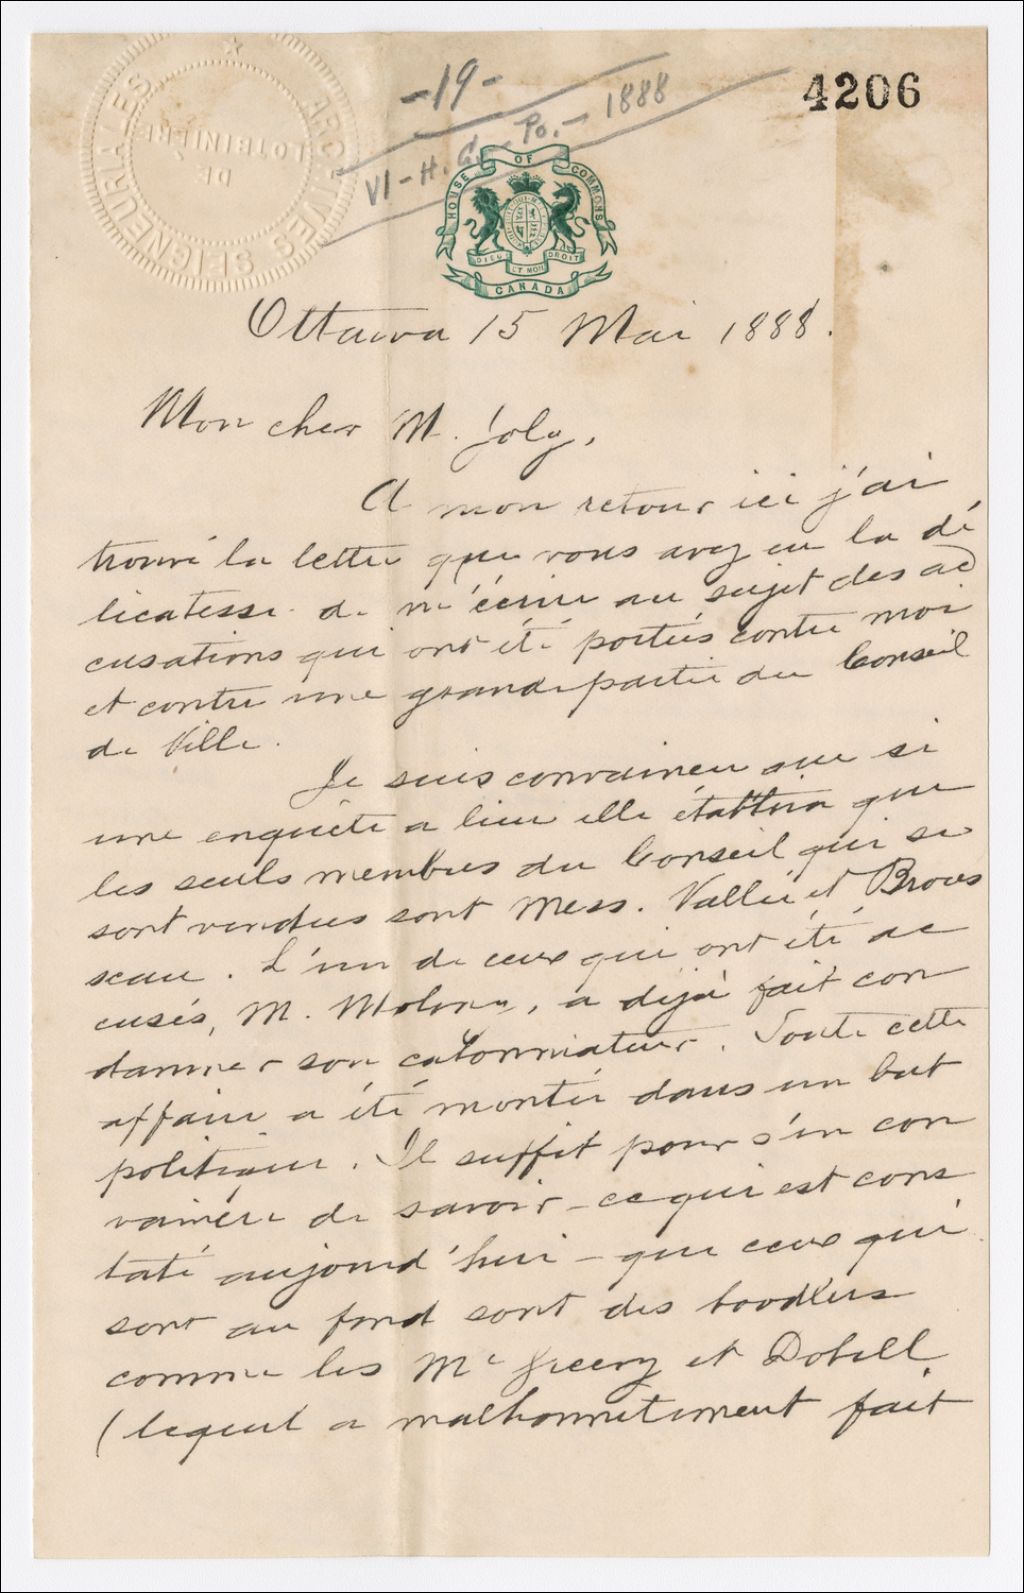 4206
-19-
VI - H. G. - Po. - 1888
ARCHIVES SEIGNEURIALES
DE
LOTBINIÈRE
HOUSE OF COMMONS
DIEU ET MON DROIT
CANADA
Ottawa 15 Mai 1888.
Mon cher M. Joly,
A mon retour ici j'ai
trouvé la lettre que vous avez eu la dé
licatesse de m'écrire au sujet des ac
cusations qui ont été portées contre moi
et contre une grande partie du Conseil
de Ville.
Je suis convaincu que si
une enquête a lieu elle établira que
les seuls membres du Conseil qui se
sont vendus sont Mess. Vallée et Brous
seau. L'un de ceux qui ont été ac
cusés, M. Molony, a déjà fait con
damner son calomniateur. Toute cette
affaire a été montée dans un but
politique. Il suffit pour s'en con
vaincre de savoir - ce qui est cons
taté aujourd'hui - que ceux qui
sont au fond sont des boodlers
comme les McGreevy et Dobell
(lequel a malhonnêtement fait